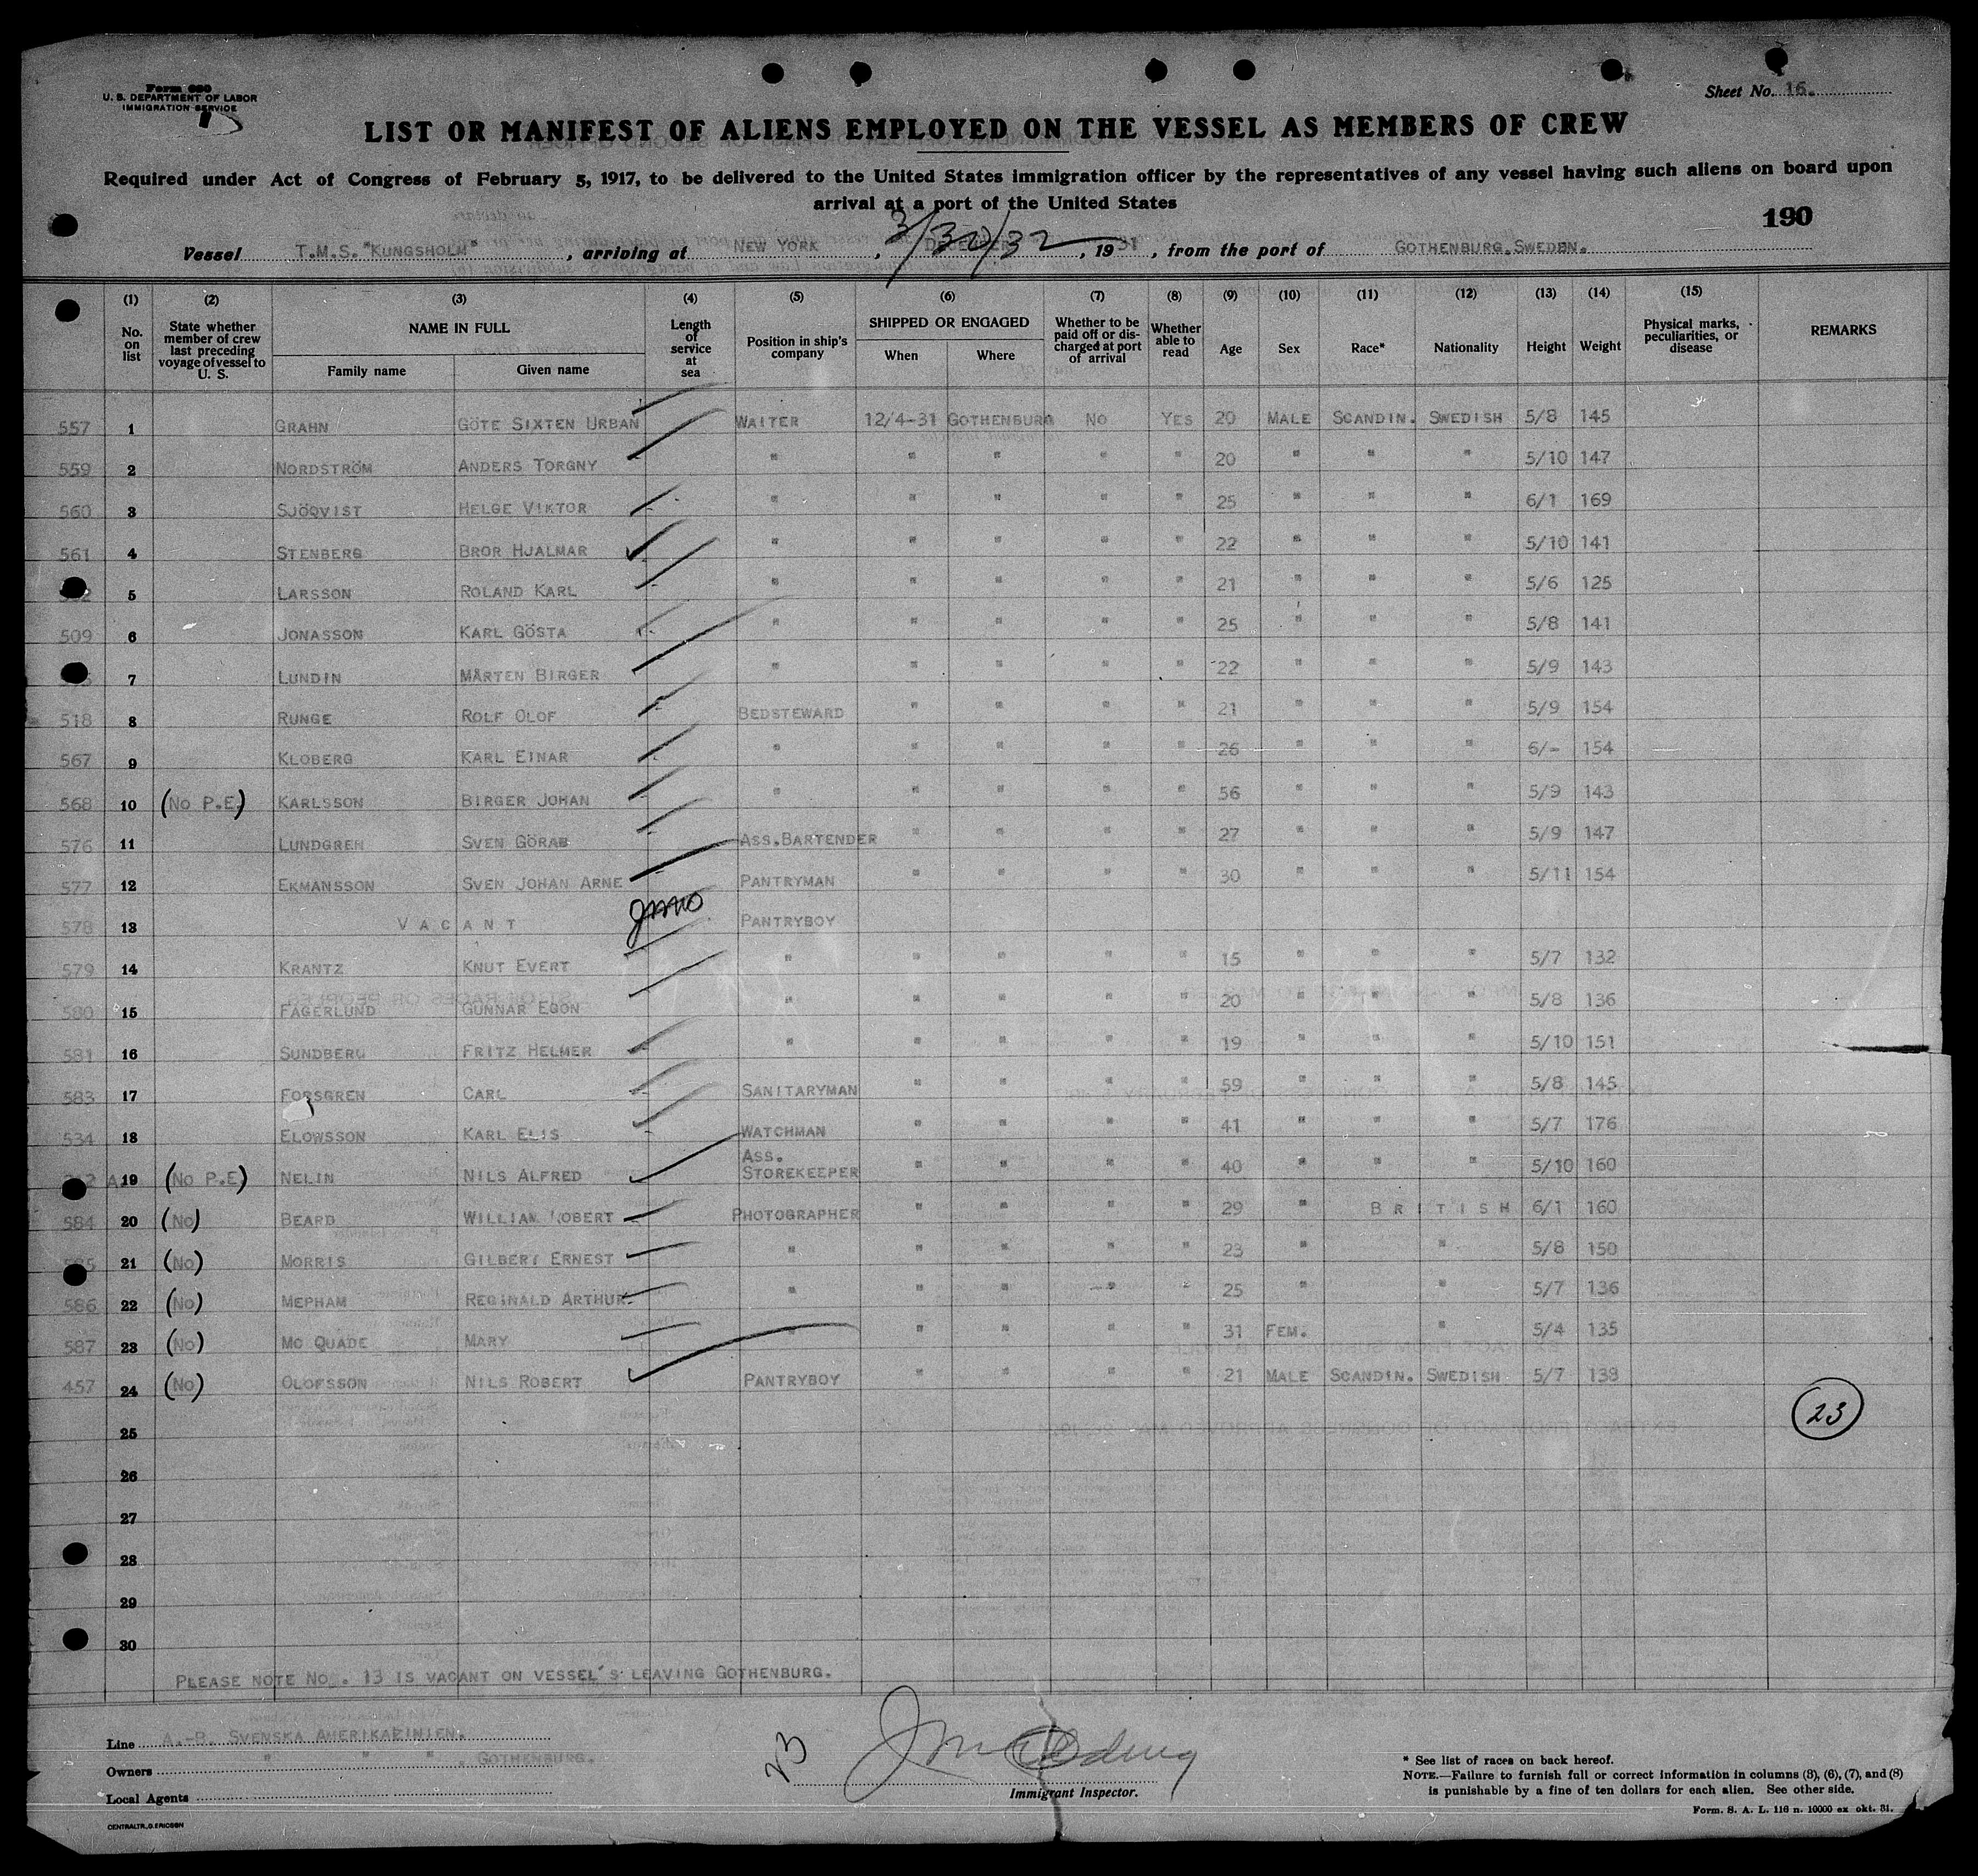 Form 680
U. S. DEPARTMENT OF LABOR
IMMIGRATION SERVICE
Sheet No. 16.
LIST OR MANIFEST OF ALIENS EMPLOYED ON THE VESSEL AS MEMBERS OF CREW
Required under Act of Congress of February 5, 1917, to be delivered to the United States immigration officer by the representatives of any vessel having such aliens on board upon
arrival at a port of the United States
190
Vessel T.M.S. "KUNGSHOLM", arriving at NEW YORK, DECEMBER 3/30/32, 1931, from the port of GOTHENBURG, SWEDEN.
(1) (2) (3) (4) (5) (6) (7) (8) (9) (10) (11) (12) (13) (14) (15)
No. on list State whether member of crew last preceding voyage of vessel to U. S. NAME IN FULL Family name Given name Length of service at sea Position in ship's company SHIPPED OR ENGAGED When Where Whether to be paid off or discharged at port of arrival Whether able to read Age Sex Race* Nationality Height Weight Physical marks, peculiarities, or disease REMARKS
557 1 GRAHN GÖTE SIXTEN URBAN WAITER 12/4-31 GOTHENBURG NO YES 20 MALE SCANDIN. SWEDISH 5/8 145
559 2 NORDSTRÖM ANDERS TORGNY " " " " " 20 " " " 5/10 147
560 3 SJÖQVIST HELGE VIKTOR " " " " " 25 " " " 6/1 169
561 4 STENBERG BROR HJALMAR " " " " " 22 " " " 5/10 141
5 LARSSON ROLAND KARL " " " " " 21 " " " 5/6 125
509 6 JONASSON KARL GÖSTA " " " " " 25 " " " 5/8 141
7 LUNDIN MÅRTEN BIRGER " " " " " 22 " " " 5/9 143
518 8 RUNGE ROLF OLOF BEDSTEWARD " " " " 21 " " " 5/9 154
567 9 KLOBERG KARL EINAR " " " " " 26 " " " 6/- 154
568 10 (NO P.E) KARLSSON BIRGER JOHAN " " " " " 56 " " " 5/9 143
576 11 LUNDGREN SVEN GÖRAB ASS.BARTENDER " " " " 27 " " " 5/9 147
577 12 EKMANSSON SVEN JOHAN ARNE PANTRYMAN " " " " 30 " " " 5/11 154
578 13 VACANT PANTRYBOY
579 14 KRANTZ KNUT EVERT " " " " " 15 " " " 5/7 132
580 15 FAGERLUND GUNNAR EGON " " " " " 20 " " " 5/8 136
581 16 SUNDBERG FRITZ HELMER " " " " " 19 " " " 5/10 151
583 17 FORSGREN CARL SANITARYMAN " " " " 59 " " " 5/8 145
534 18 ELOWSSON KARL ELIS WATCHMAN " " " " 41 " " " 5/7 176
19 (NO P.E) NELIN NILS ALFRED ASS. STOREKEEPER " " " " 40 " " " 5/10 160
584 20 (NO) BEARD WILLIAM ROBERT PHOTOGRAPHER " " " " 29 " BRITISH 6/1 160
21 (NO) MORRIS GILBERT ERNEST " " " " " 23 " " 5/8 150
586 22 (NO) MEPHAM REGINALD ARTHUR. " " " " " 25 " " 5/7 136
587 23 (NO) MC QUADE MARY " " " " " 31 FEM. " 5/4 135
457 24 (NO) OLOFSSON NILS ROBERT PANTRYBOY " " " " 21 MALE SCANDIN. SWEDISH 5/7 138
23
25
26
27
28
29
30
PLEASE NOTE NO. 13 IS VACANT ON VESSEL'S LEAVING GOTHENBURG.
Line A.-B. SVENSKA AMERIKALINIEN.
Owners " " " , GOTHENBURG.
Local Agents
23
Immigrant Inspector.
* See list of races on back hereof.
NOTE.—Failure to furnish full or correct information in columns (3), (6), (7), and (8)
is punishable by a fine of ten dollars for each alien. See other side.
Form. S. A. L. 116 n. 10000 ex okt. 31.
CENTRALTR., G. ERICSON